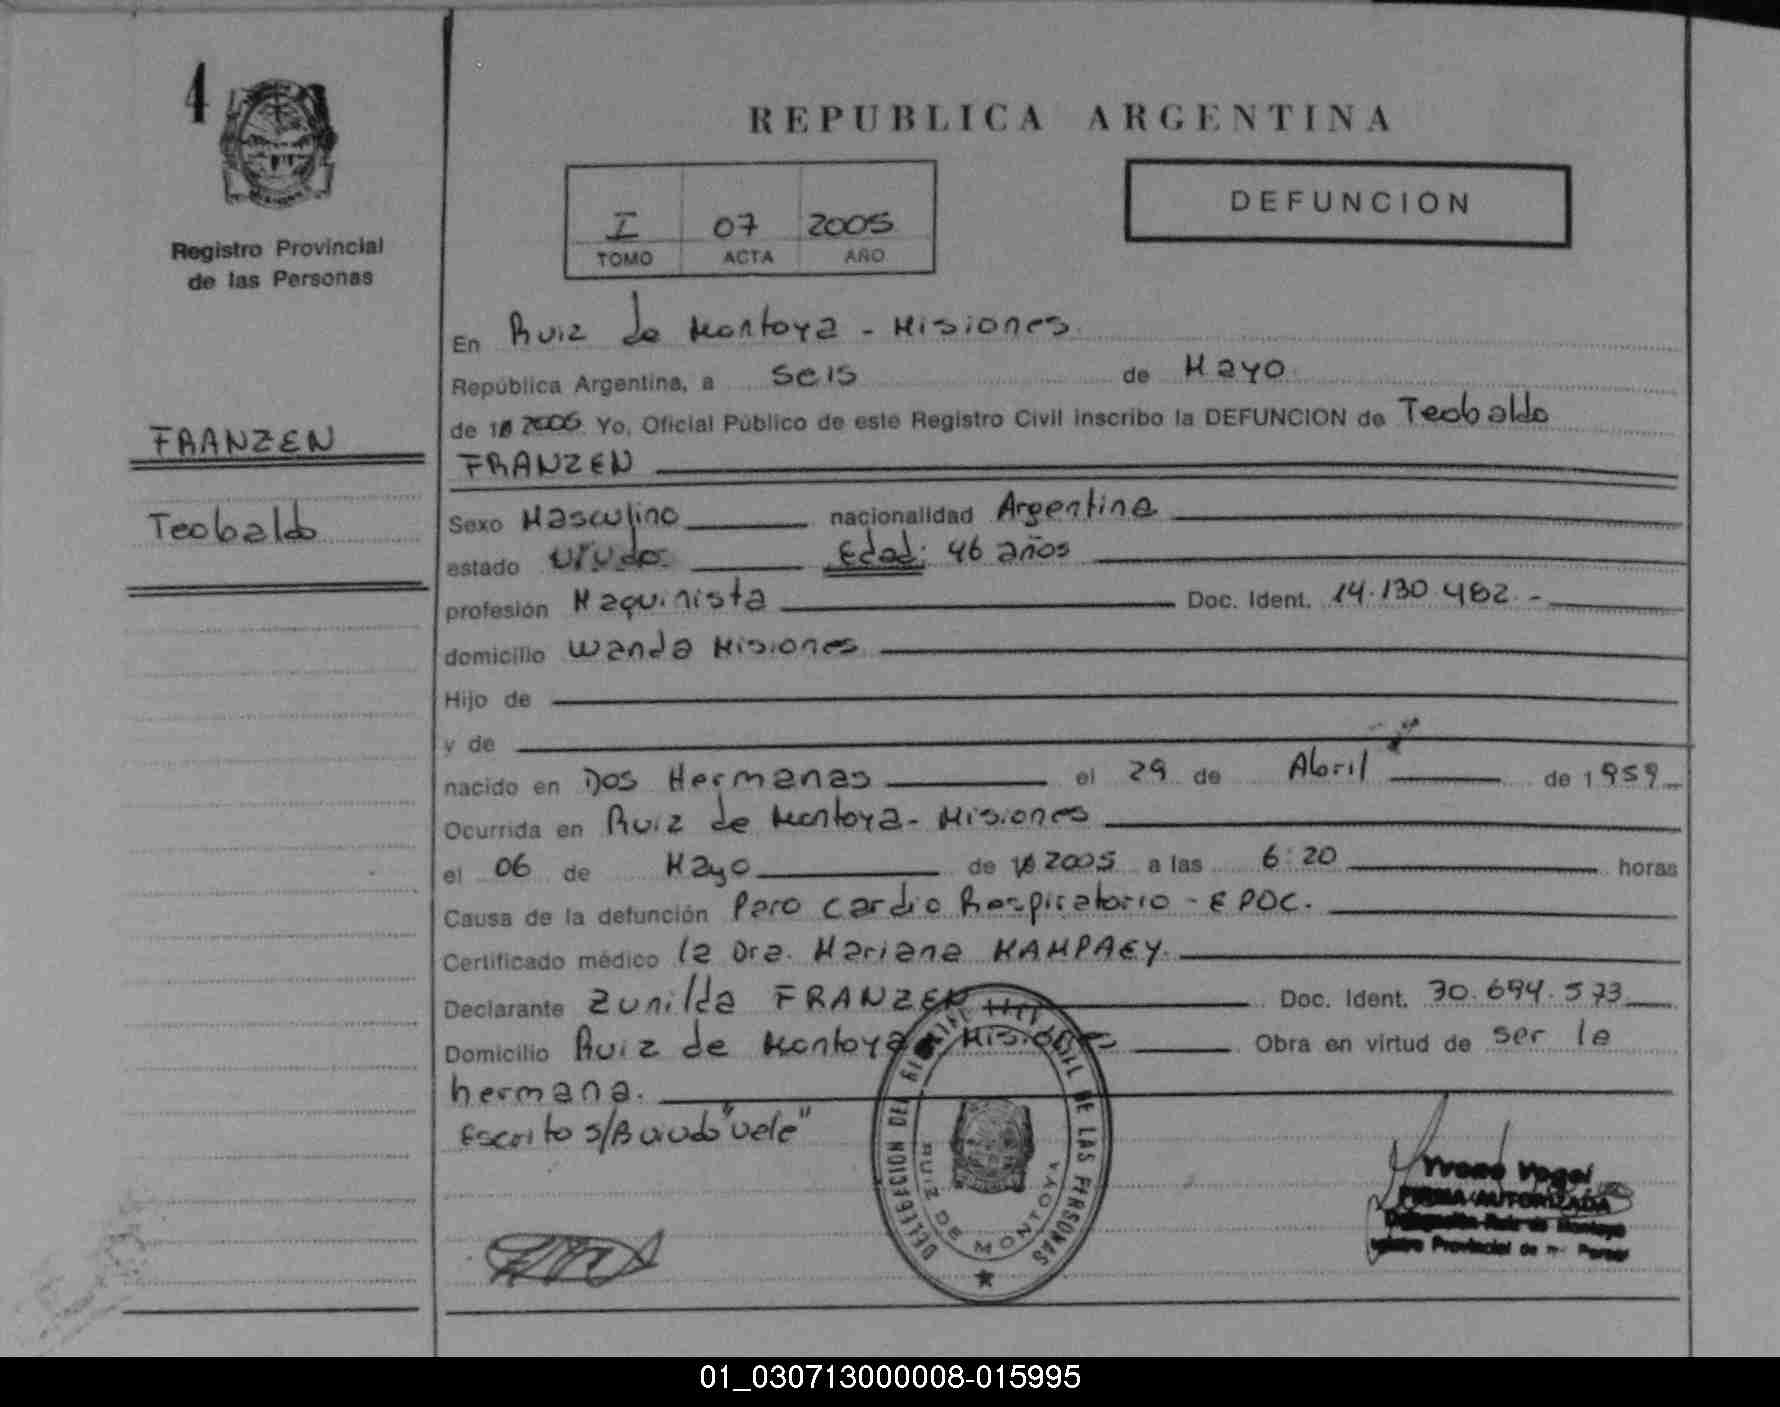 4
Registro Provincial
de las Personas
FRANZEN
Teobaldo
REPUBLICA ARGENTINA
I 07 2005
TOMO ACTA AÑO
DEFUNCION
En Ruiz de Montoya - Misiones
República Argentina, a seis de Mayo
de 2005 Yo, Oficial Público de este Registro Civil inscribo la DEFUNCION de Teobaldo
FRANZEN
Sexo Masculino nacionalidad Argentina
estado viudo Edad: 46 años
profesión Maquinista Doc. Ident. 14.130.482.-
domicilio Wanda Misiones
Hijo de
y de
nacido en Dos Hermanas el 29 de Abril de 1959
Ocurrida en Ruiz de Montoya - Misiones
el 06 de Mayo de 2005 a las 6:20 horas
Causa de la defunción Paro Cardio Respiratorio - EPOC.
Certificado médico la Dra. Mariana
Declarante Zunilda FRANZEN Doc. Ident. 30.694.573
Domicilio Ruiz de Montoya Misiones Obra en virtud de ser la
hermana.
Escrito s/B viudo "vale"
DELEGACION DEL REGISTRO CIVIL DE LAS PERSONAS
RUIZ DE MONTOYA
FIRMA AUTORIZADA
Delegación Ruiz de Montoya
Provincial de
01_030713000008-015995